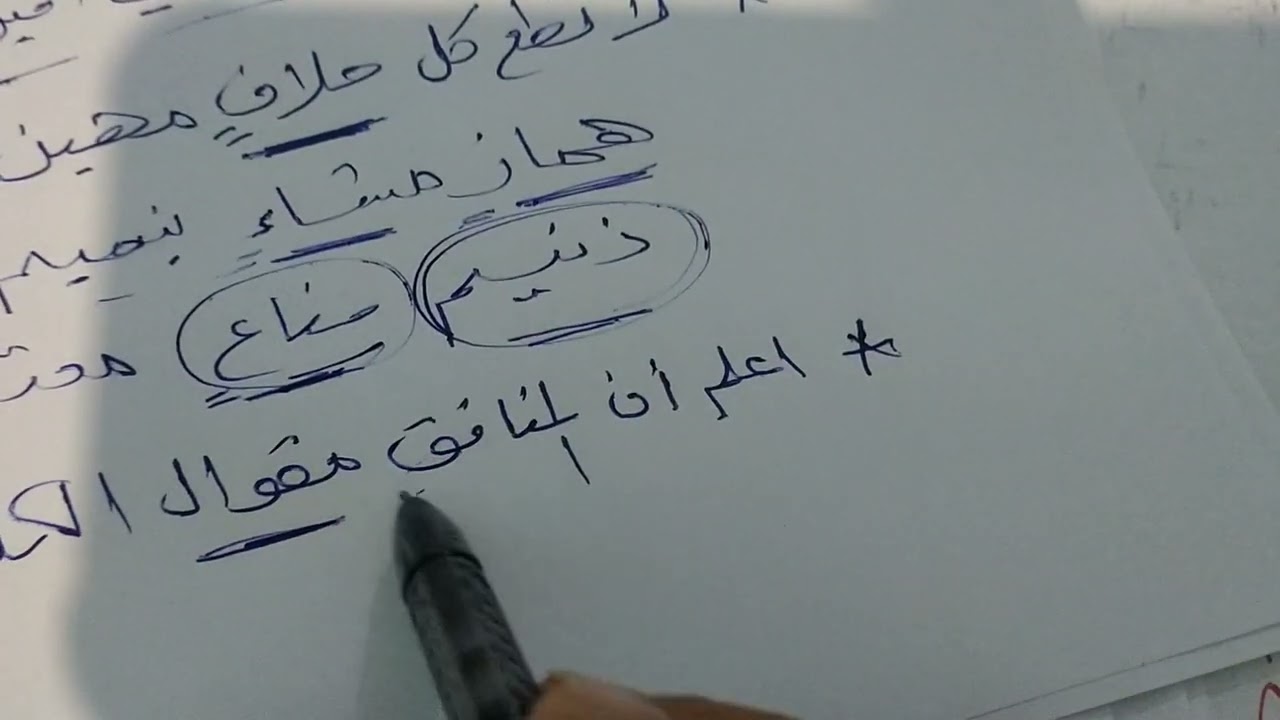 * لا تطع كل حلافٍ مهين
همازٍ مشاءٍ بنميم
زنيم مناعٍ
* اعلم أن المنافق مقوال